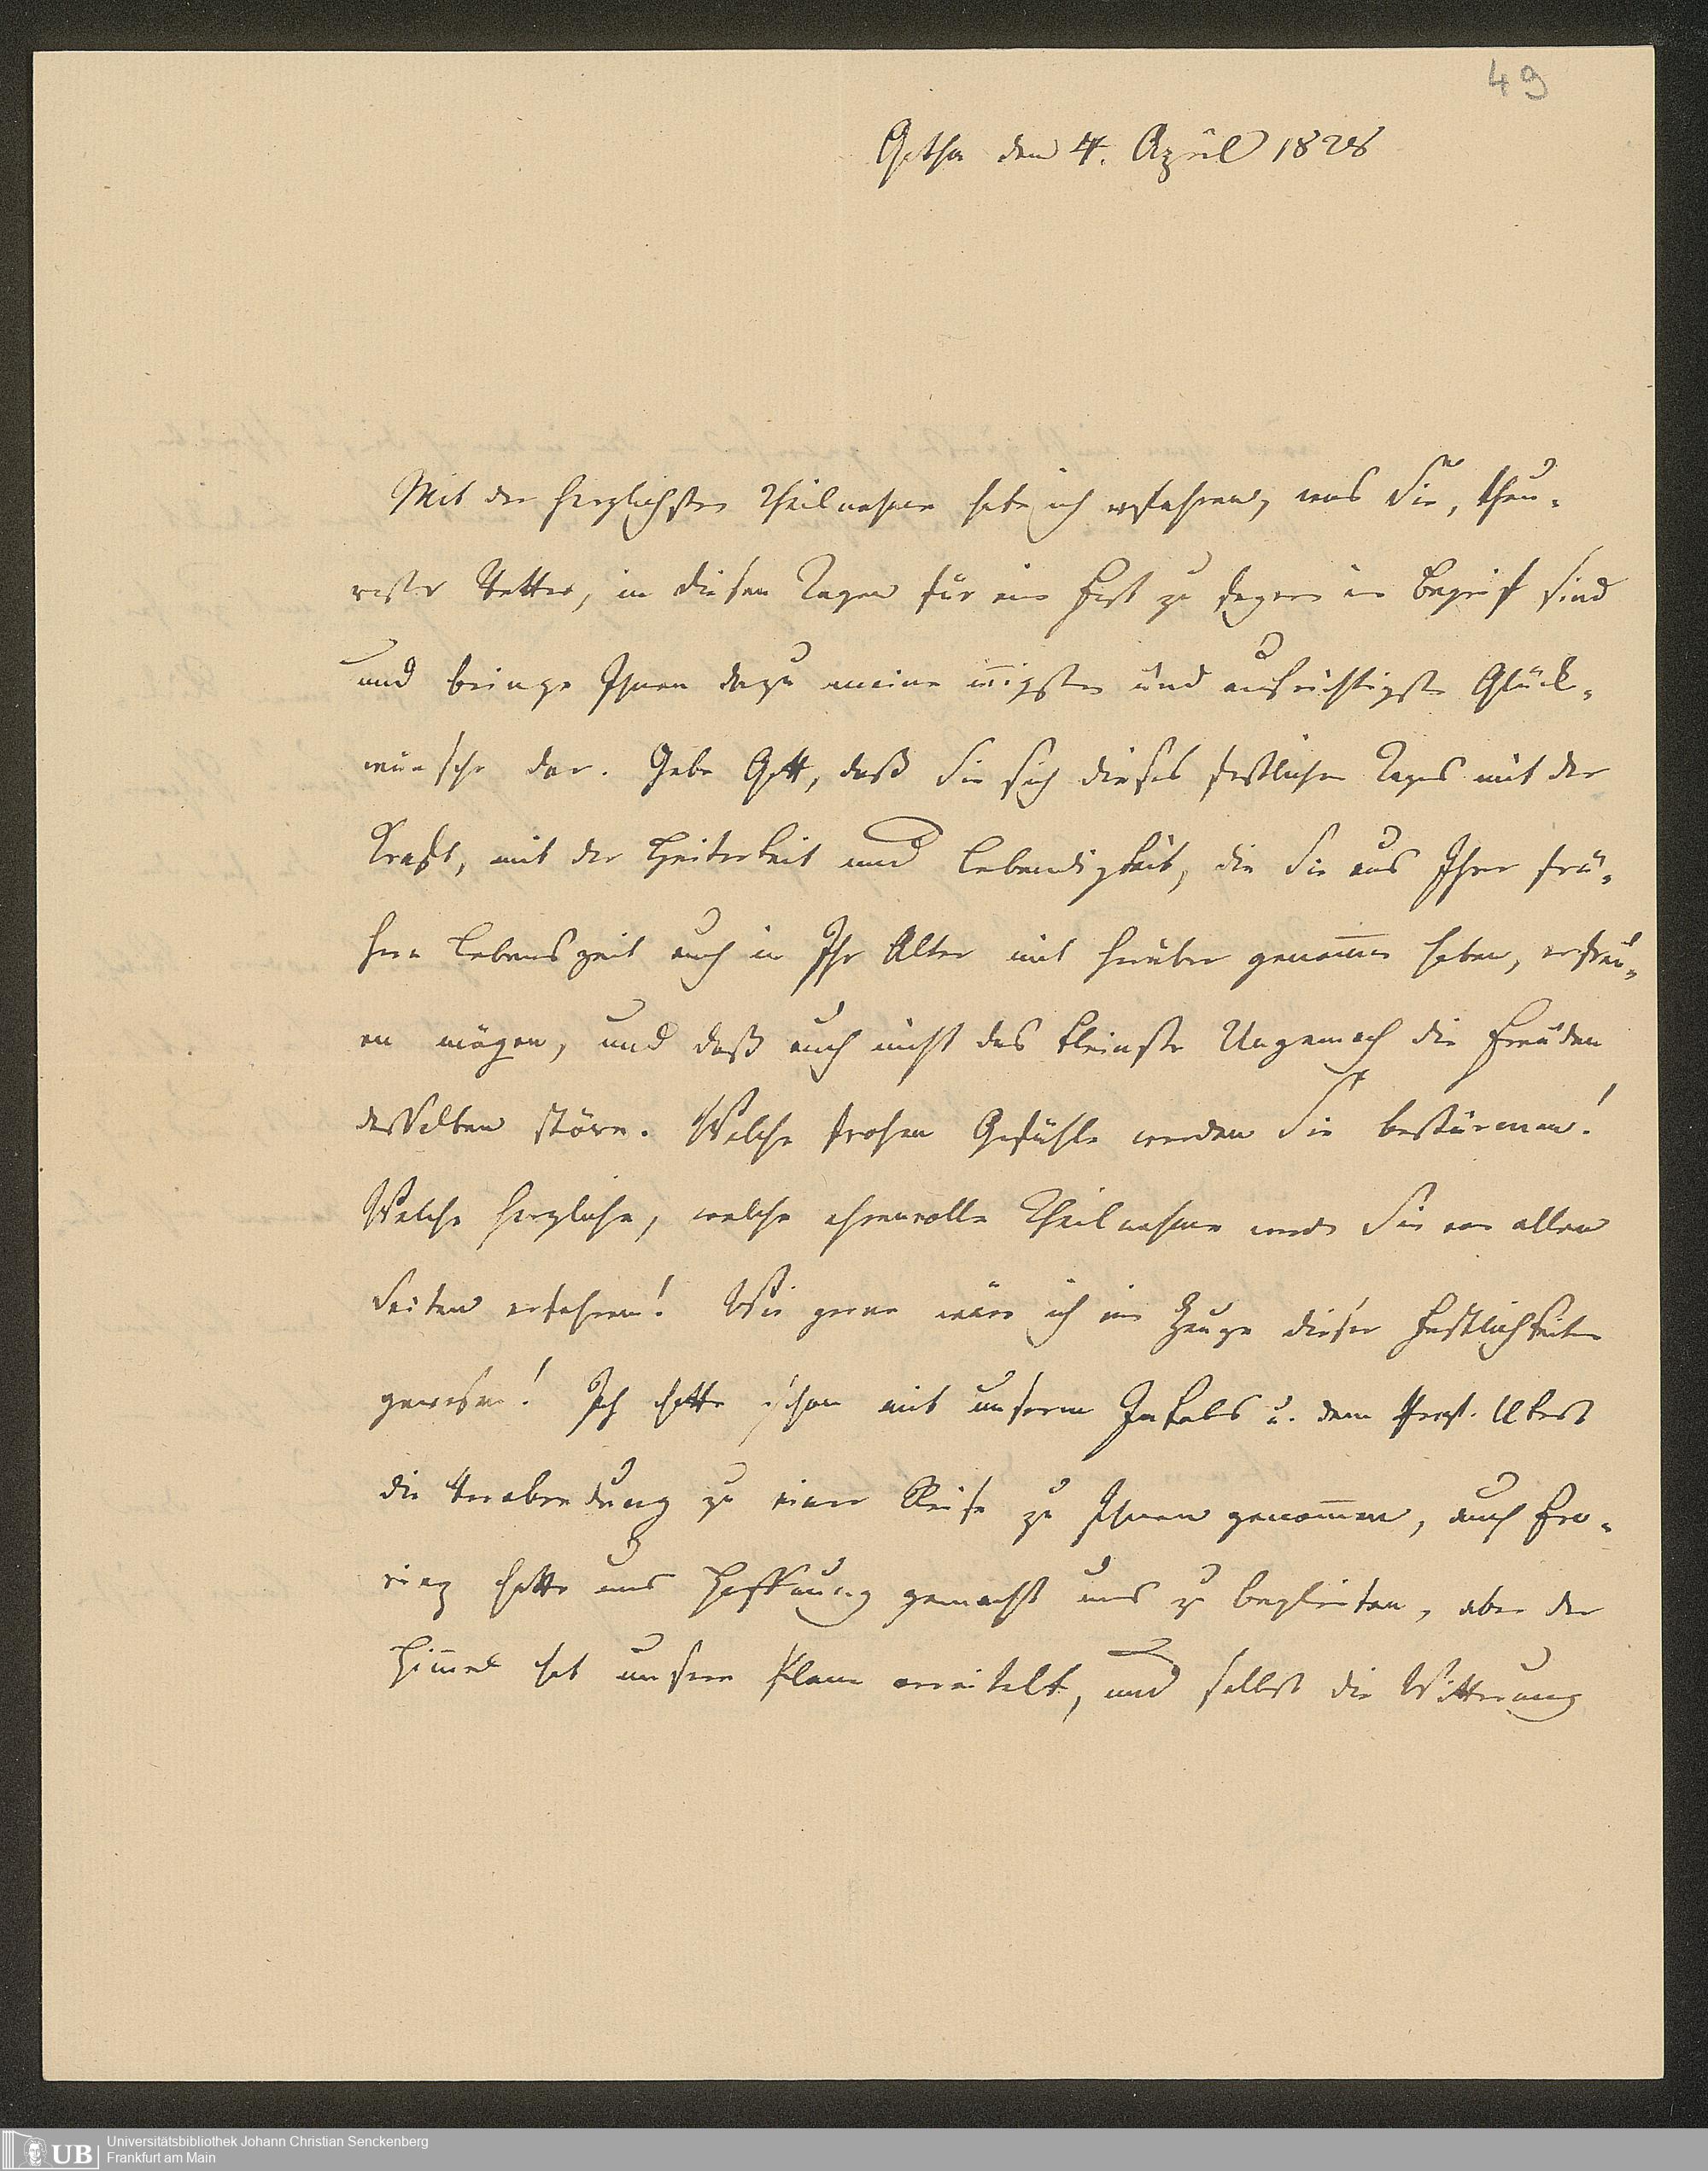 49
Gotha den 4. April 1828
Mit der herzlichsten Theilnahme habe ich erfahren, was Sie, theu-
rester Vetter, in diesen Tagen für ein Fest zu feyern im Begriff sind
und bringe Ihnen dazu meine innigsten und aufrichtigste Glück-
wünsche dar. Gebe Gott, daß Sie sich dieses festlichen Tages mit der
Kraft, mit der Heiterkeit und Lebendigkeit, die Sie aus Ihrer frü-
hern Lebenszeit auch in Ihr Alter mit herüber genommen haben, erfreu-
en mögen, und daß auch nicht das kleinste Ungemach die Freuden
desselben störe. Welche frohen Gefühle werden Sie bestürmen!
Welche herzliche, welche ehrenvolle Theilnahme werden Sie von allen
Seiten erfahren! Wie gerne wäre ich ein Zeuge dieser Festlichkeiten
gewesen! Ich hatte schon mit unserm Jakobs u. dem Prof. Ukert
die Verabredung zu einer Reise zu Ihnen genommen, auch
hatte uns Hoffnung gemacht uns zu begleiten, aber der
Himmel hat unsern Plan vereitelt, und selbst die Witterung
UB
Universitätsbibliothek Johann Christian Senckenberg
Frankfurt am Main